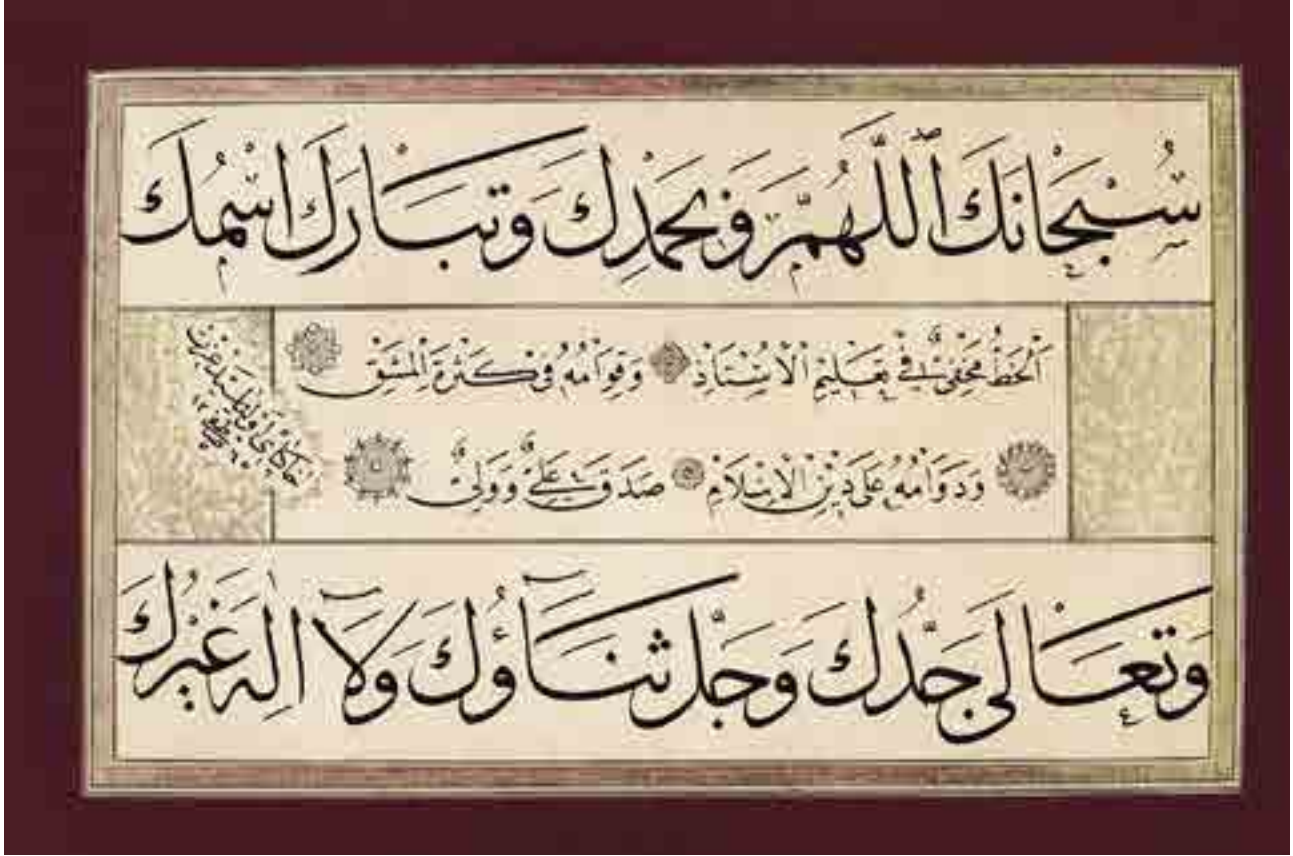 سُبْحَانَكَ ٱللَّهُمَّ وَبِحَمْدِكَ وَتَبَارَكَ اسْمُكَ
اَلْخَطُّ مَخْفِىٌّ فِى تَعْلِيمِ الْاُسْتَاذِ وَقِوَامُهُ فِى كَثْرَةِ الْمَشْقِ
وَدَوَامُهُ عَلَى دِينِ الْاِسْلَامِ صَدَقَ عَلِىٌّ وَوَلِىٌّ
وَتَعَالَى جَدُّكَ وَجَلَّ ثَنَاؤُكَ وَلَآ اِلٰهَ غَيْرُكَ